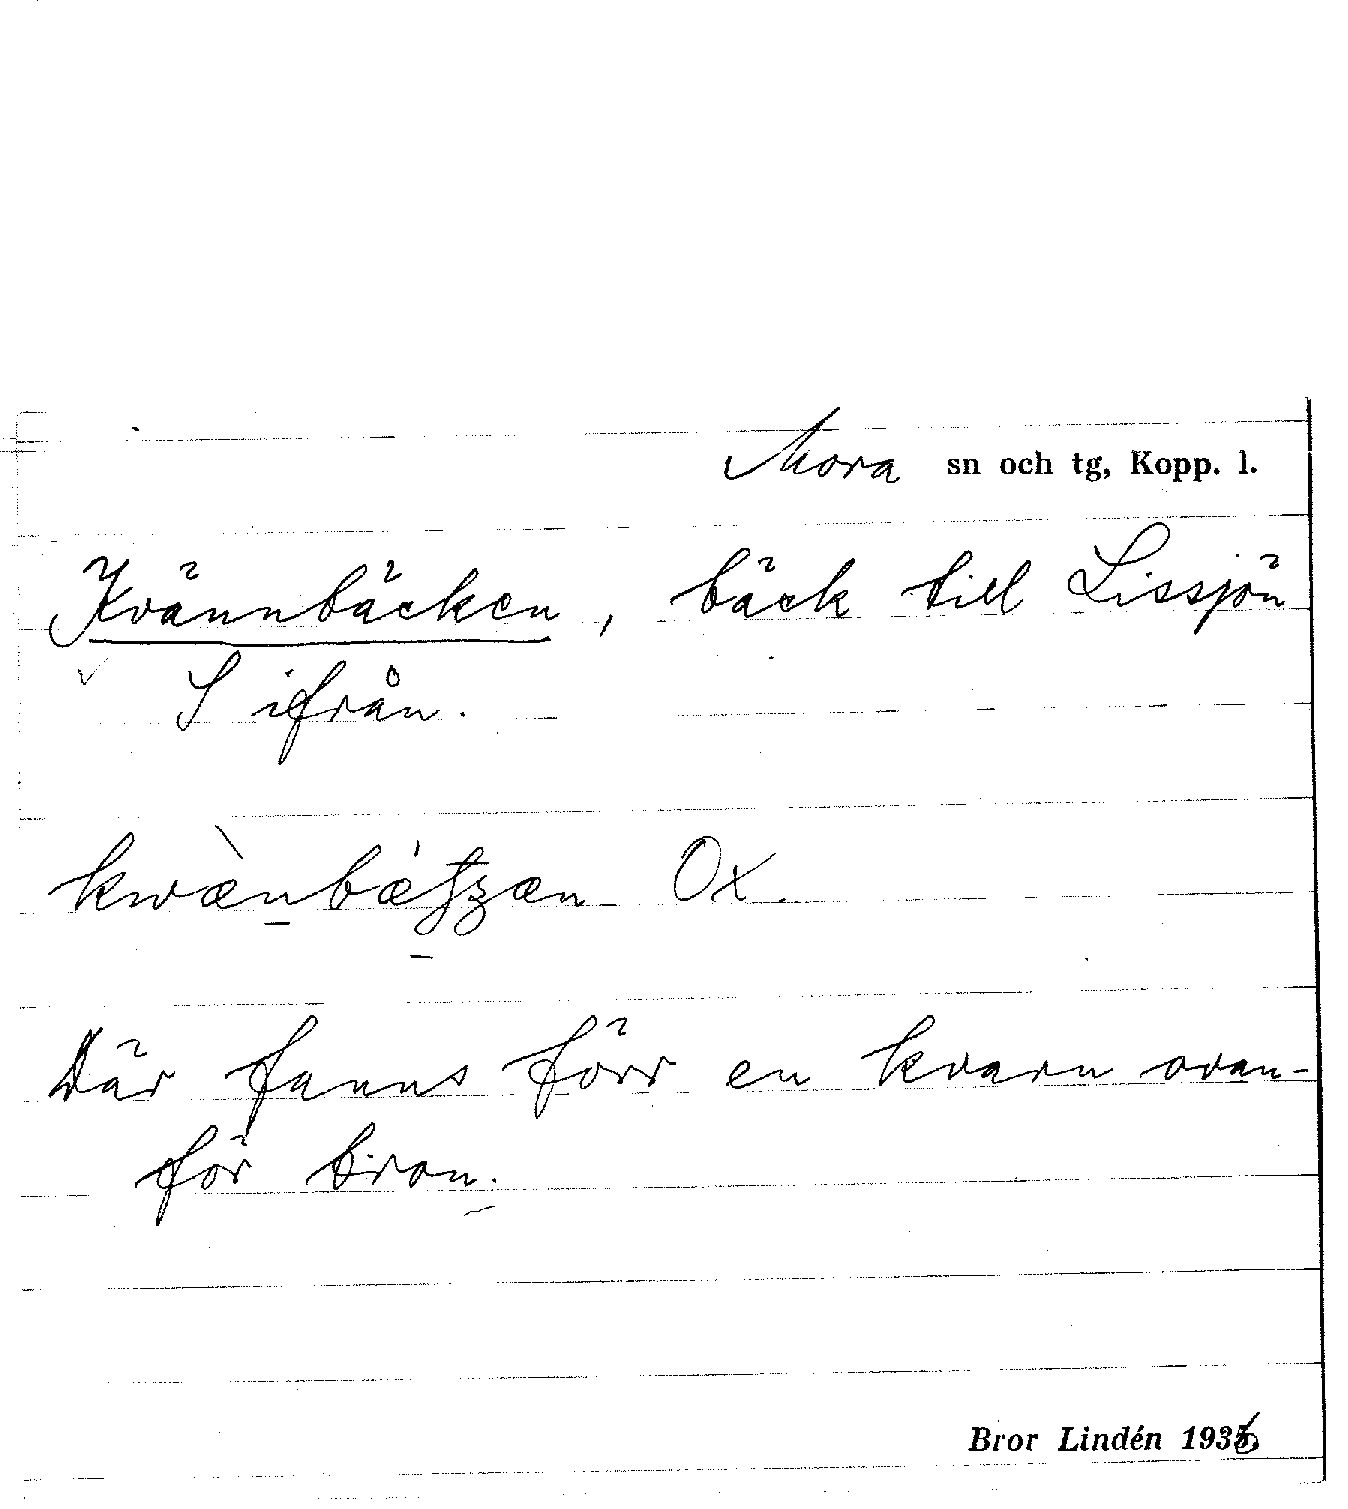 Mora sn och tg, Kopp. l.
Kvännbäcken, bäck till Lissjön
S ifrån.
Ox.
Där fanns förr en kvarn ovan-
för bron.
Bror Lindén 1936